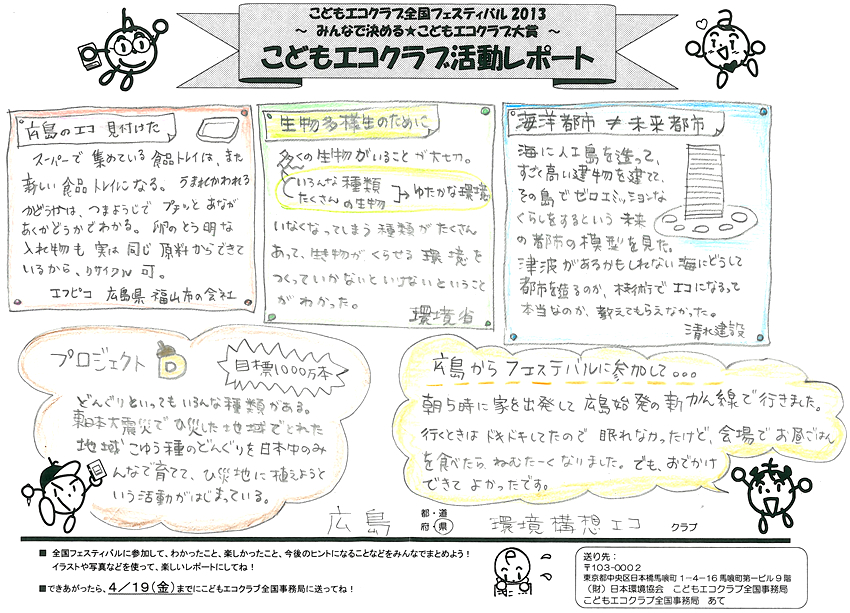 こどもエコクラブ全国フェスティバル 2013
～ みんなで決める★こどもエコクラブ大賞 ～
こどもエコクラブ活動レポート
広島のエコ 見付けた
スーパーで 集めている 食品トレイは、また
新しい 食品 トレイになる。 うまれかわれる
かどうかは、つまようじで プチッと あなが
あくかどうかでわかる。 卵のとう明な
入れ物も 実は 同じ 原料からできて
いるから、リサイクル 可。
エフピコ 広島県 福山市の会社
生物多様生のために
多くの生物がいることが大切。
いろんな種類
たくさんの生物
→ゆたかな環境
いなくなってしまう 種類がたくさん
あって、生き物がくらせる 環境を
つくっていかないといけないということ
がわかった。
環境省
海洋都市 ≠ 未来都市
海に人工島を造って、
すごく高い建物を建てて、
その島でゼロエミッションな
くらしをするという 未来
の都市の模型を見た。
津波があるかもしれない海にどうして
都市を造るのか、木技術で エコになるって
本当なのか、教えてもらえなかった。
清水建設
プロジェクト D
目標1000万本
どんぐりといってもいろんな種類がある。
東日本大震災でひ災した地域でとれた
地域こゆう種のどんぐりを日本中のみ
んなで育てて、ひ災地に植えようと
いう活動がはじまっている。
広島から フェスティバルに参加して。。。
朝5時に家を出発して 広島始発の新かん線で行きました。
行くときは ドキドキしてたので 眠れなかったけど、会場でお昼ごはん
を食べたら、ねむたーく なりました。でも、おでかけ
できて よかったです。
広島 都・道 府・県 環境構想エコ クラブ
■ 全国フェスティバルに参加して、わかったこと、楽しかったこと、今後のヒントになることなどをみんなでまとめよう！
イラストや写真などを使って、楽しいレポートにしてね！
■できあがったら、4／19(金)までにこどもエコクラブ全国事務局に送ってね！
送り先：
〒103-0002
東京都中央区日本橋馬喰町１－４－16 馬喰町第一ビル９階
（財）日本環境協会 こどもエコクラブ全国事務局
こどもエコクラブ全国事務局 あて